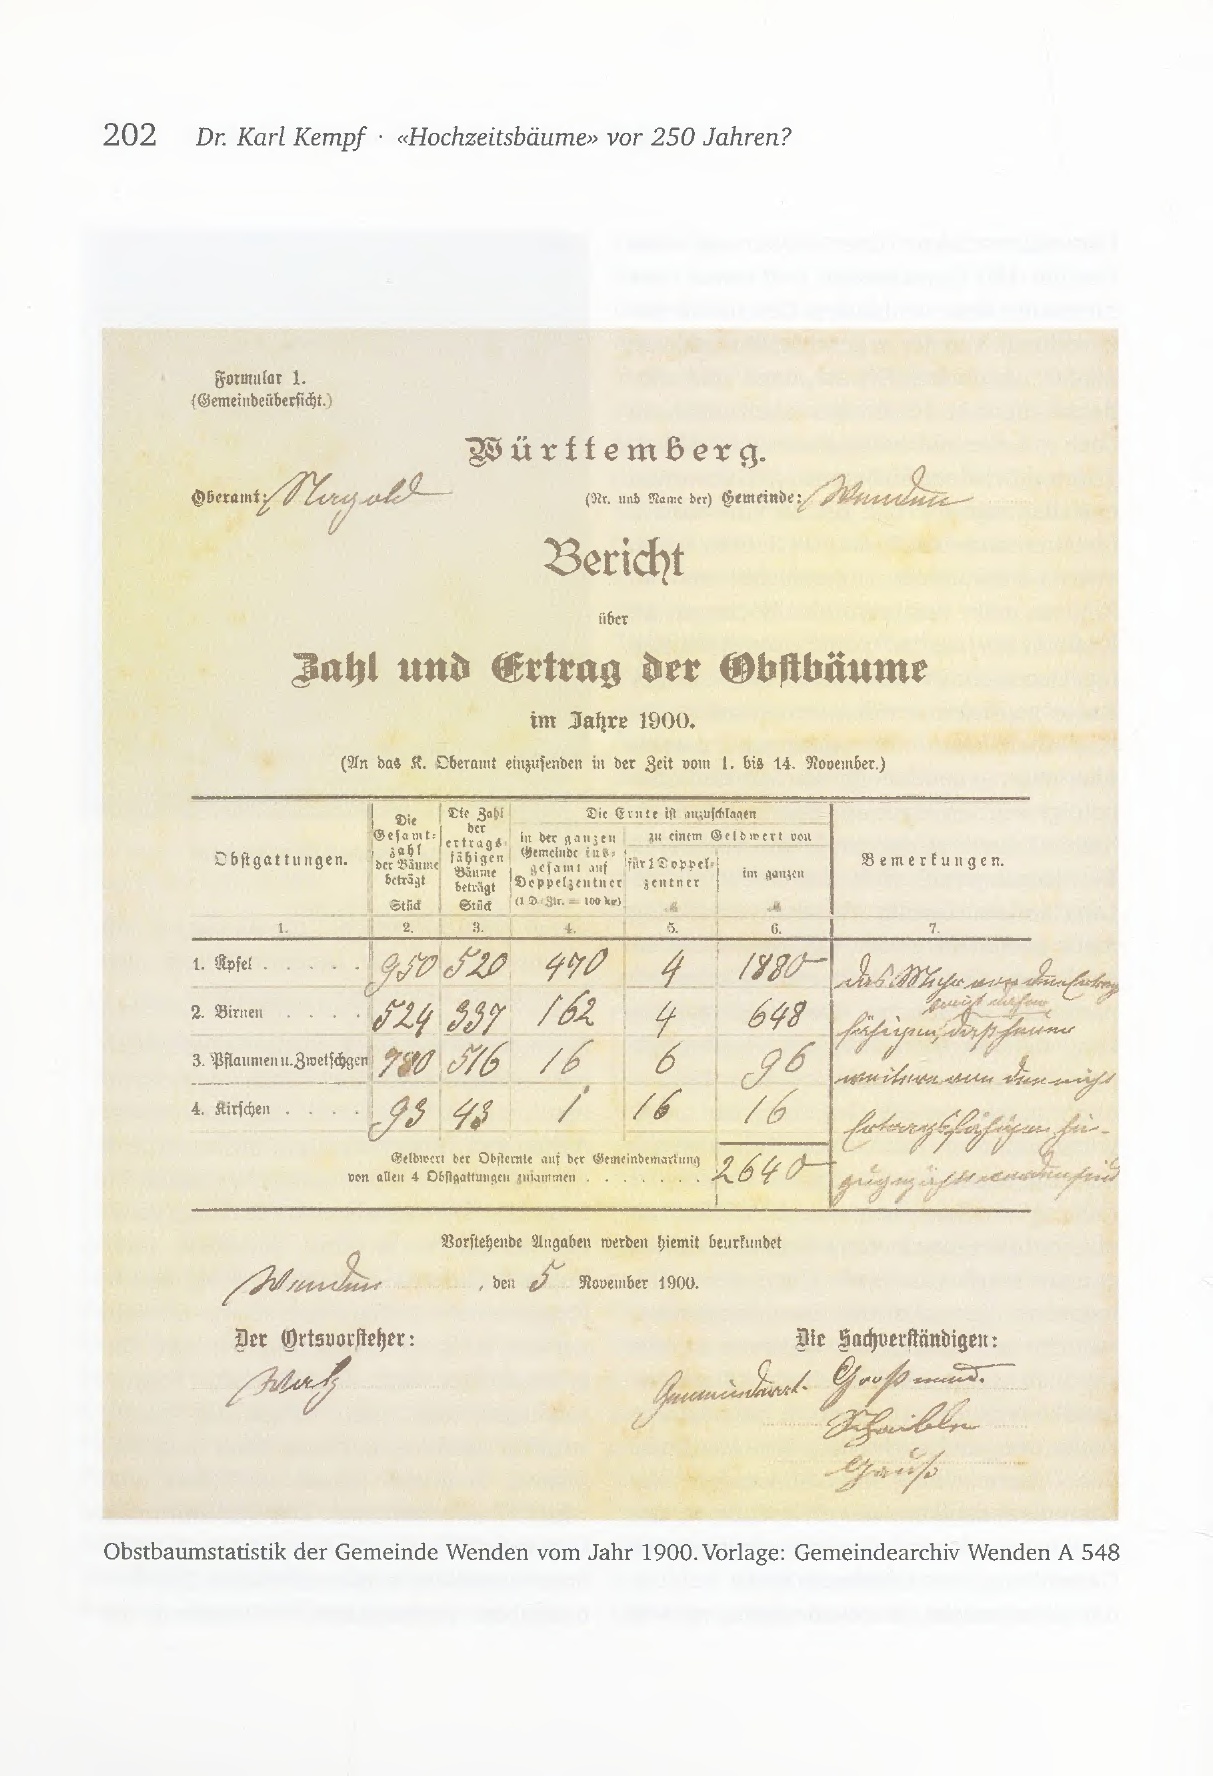 202 Dr. Karl Kempf · «Hochzeitsbäume» vor 250 Jahren?
Formular 1.
(Gemeindeübersicht.)
Württemberg.
Oberamt: Nagold (Nr. und Name der) Gemeinde: Wenden
Bericht
über
Zahl und Ertrag der Obstbäume
im Jahre 1900.
(An das K. Oberamt einzusenden in der Zeit vom 1. bis 14. November.)
Obstgattungen.
Die Gesamt-
zahl
der Bäume
beträgt
Stück
Die Zahl
der
ertrags-
fähigen
Bäume
beträgt
Stück
Die Ernte ist anzuschlagen
in der ganzen
Gemeinde ins-
gesamt auf
Doppelzentner
(1 D.-Ztr. = 100 kg)
zu einem Geldwert von
für 1 Doppel-
zentner
ℳ
im ganzen
ℳ
Bemerkungen.
1. 2. 3. 4. 5. 6. 7.
1. Äpfel . . . . . 950 520 470 4 1880
2. Birnen . . . . 524 337 162 4 648
3. Pflaumen u. Zwetschgen 780 516 16 6 96
4. Kirschen . . . . 93 43 1 16 16
das Mehr von den Ertrag
fähigen, daß heuer
weitere von den nicht
Ertragsfähigen hin-
zugezählt worden sind
Geldwert der Obsternte auf der Gemeindemarkung
von allen 4 Obstgattungen zusammen . . . . . . . 2640
Vorstehende Angaben werden hiemit beurkundet
Wenden, den 5 November 1900.
Der Ortsvorsteher: Die Sachverständigen:
Gemeinderat. Großmann.
Schaible
Gauß
Obstbaumstatistik der Gemeinde Wenden vom Jahr 1900. Vorlage: Gemeindearchiv Wenden A 548